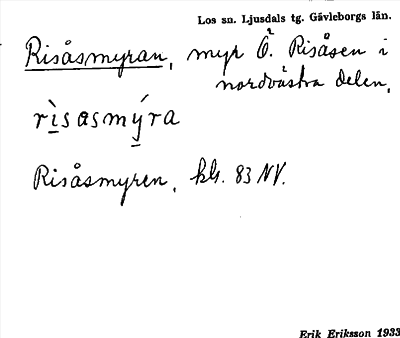 Los sn. Ljusdals tg. Gävleborgs län.
Risåsmyran, myr Ö. Risåsen i
nordvästra delen.
rìsasmýra
Risåsmyren, kls. 83 NV.
Erik Eriksson 1933